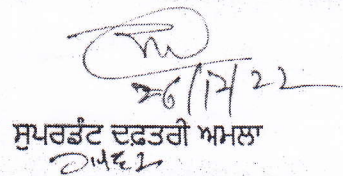 26/12/22
ਸੁਪਰਡੰਟ ਦਫ਼ਤਰੀ ਅਮਲਾ